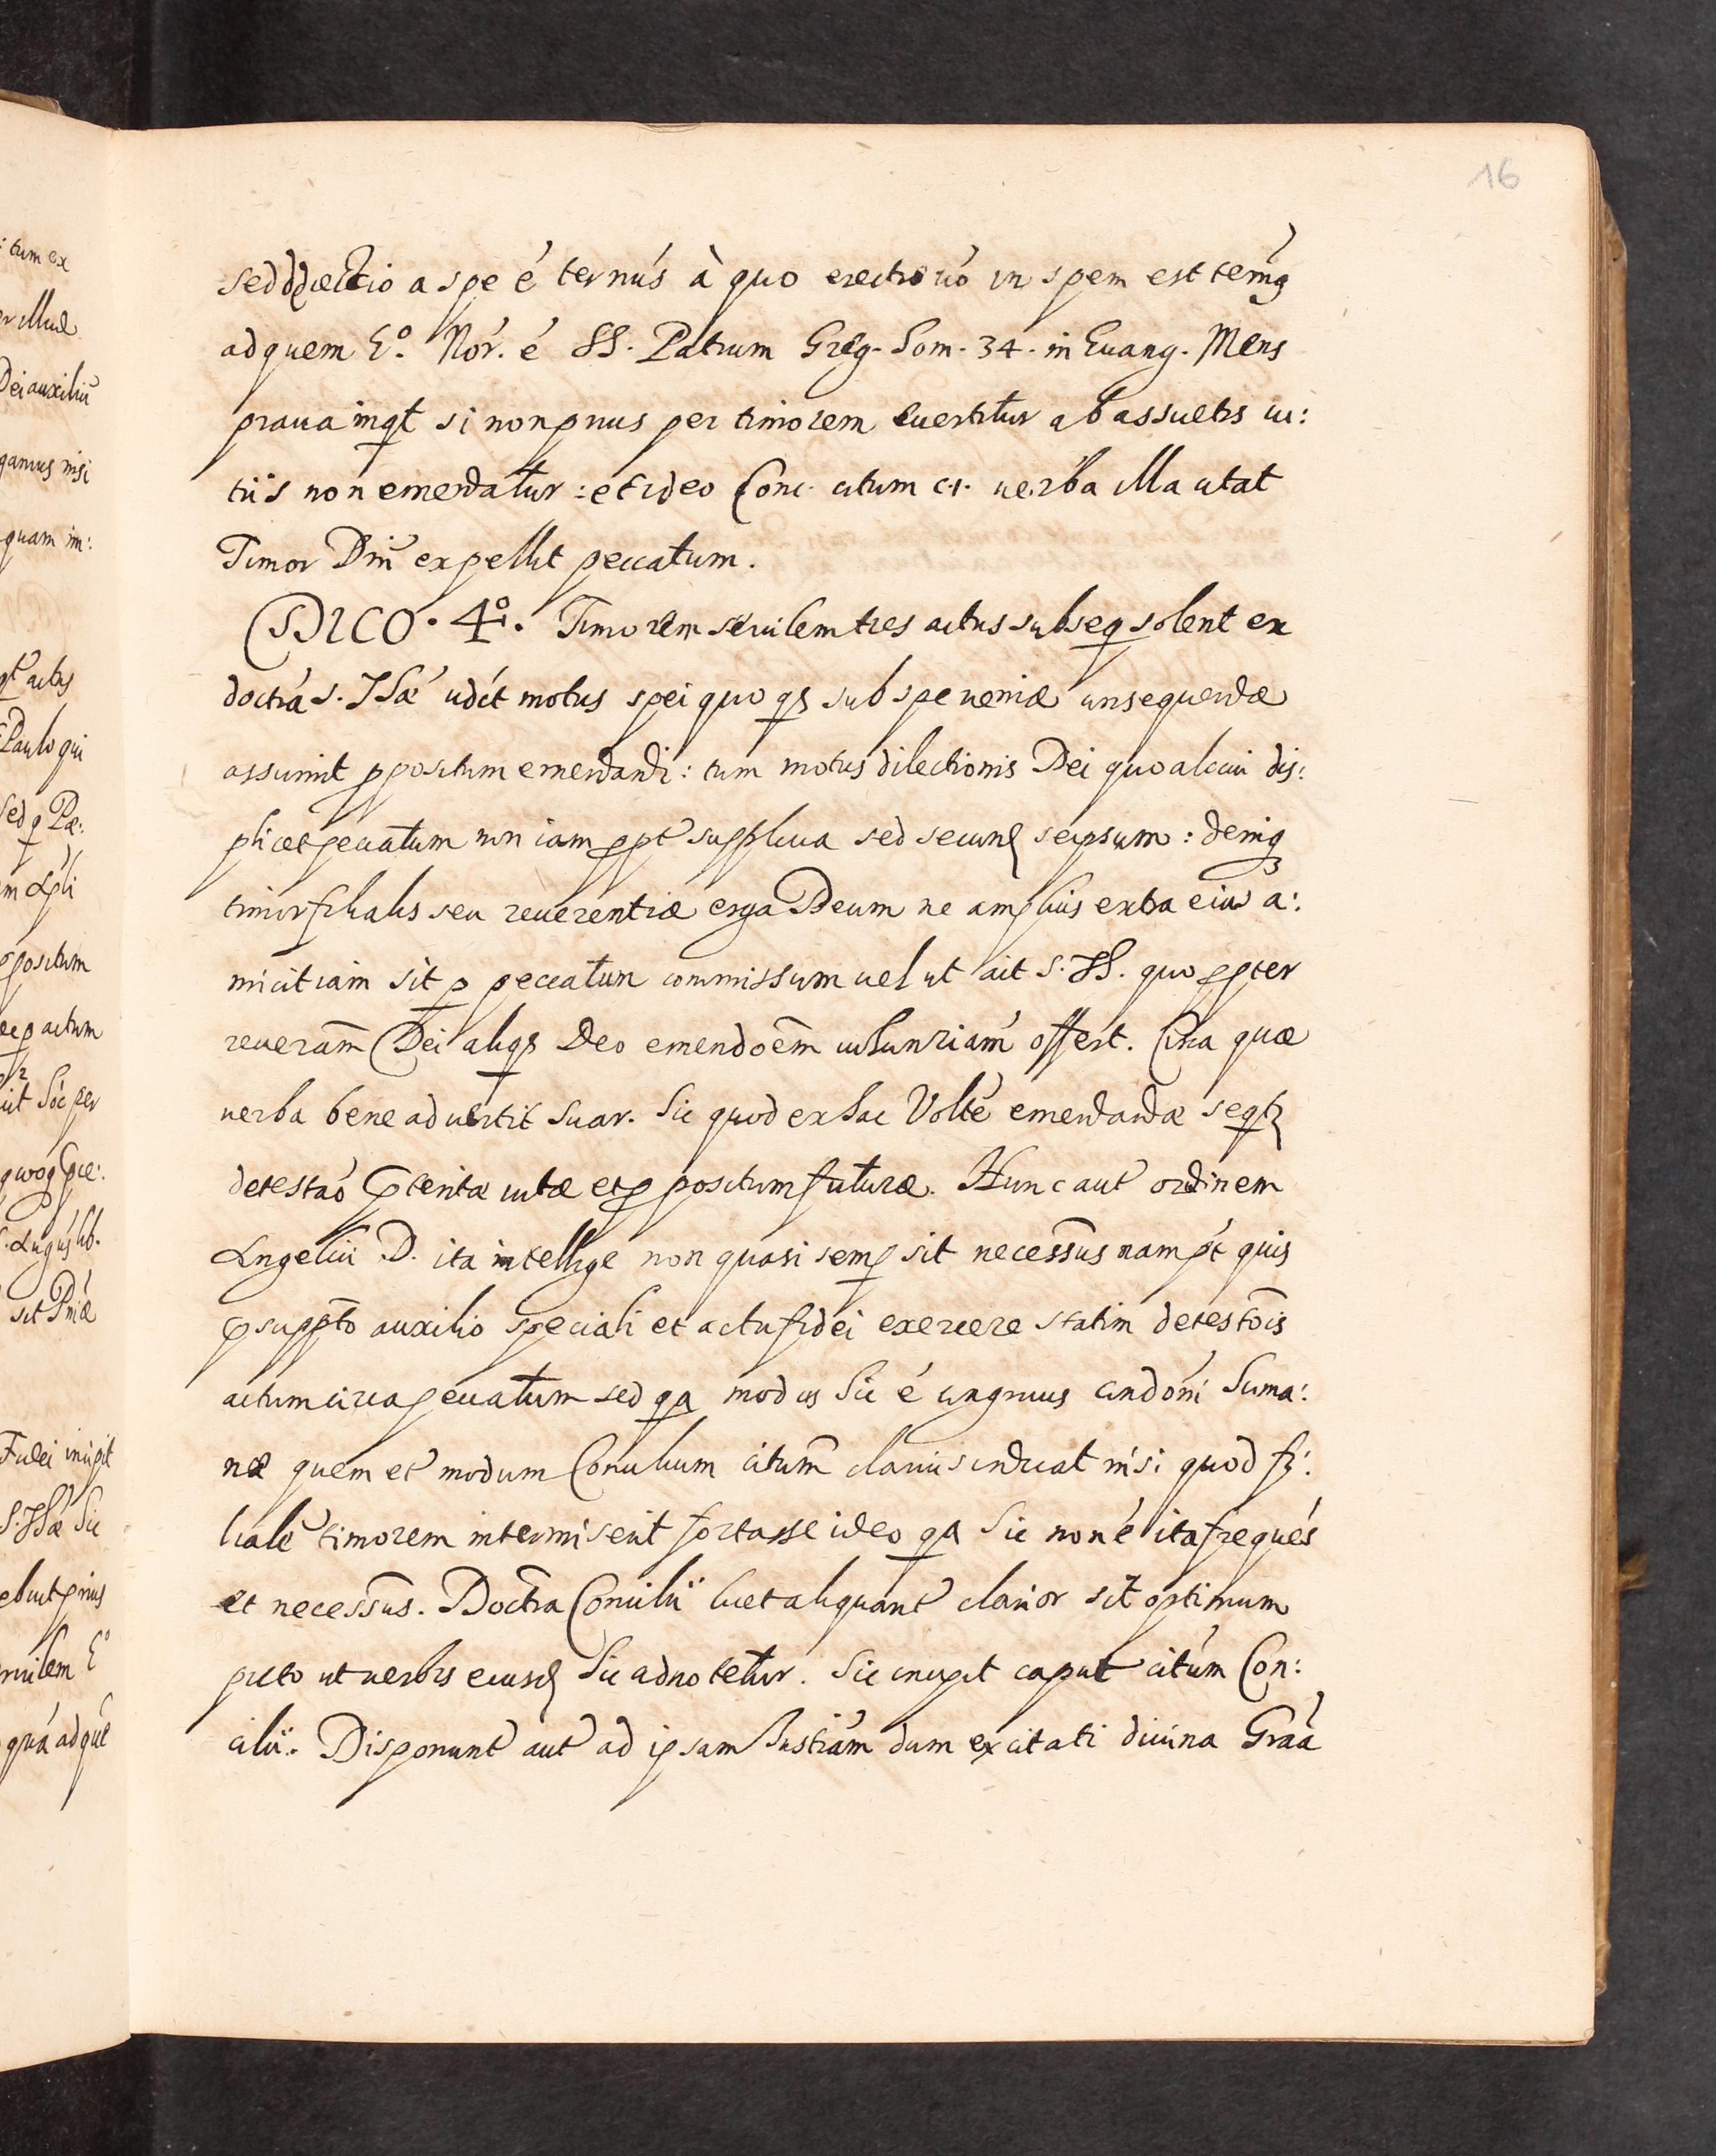 16
sed deiectio a spe é ternús à quo erectio uó in spem est térmq
ad quem E.º Nór. é SS. Patrum Greg. Hom. 34. in Euang. Mens
praua inqt si non prius per timorem euertitur ab assuetis ui:
tiis non emendatur: et ideo Conc. citum c.1. uerba illa citat
Timor Dni expellit peccatum.
DICO. 4º. Timorem seruilem tres actus subseq solent ex
doctrá S. Thæ uidét motus spei quo qs sub spe ueniæ consequendæ
assumit ppositum emendandi: tum motus dilectionis Dei quo alicui dis:
plicet peccatum non iam ppt supplicia sed secund seipsum: deniq
timor filialis seu reuerentiæ erga Deum ne amplius extra eius a:
micitiam sit p peccatum commissum uel ut ait S. Th. quo ppter
reueram Dei aliqs Deo emendoem uoluntriam offert. Circa quæ
uerba bene aduertit Suar. hic quod ex hac Volte emendandæ seqtr
detestaó pteritæ uitæ et ppositum futuræ. Hunc aut ordinem
Angelici D. ita intellige non quasi semp sit necessus nam pt quis
psuppto auxilio speciali et actu fidei exercere statim detestois
actum circa peccatum sed qa modus hic é congruus condóni huma:
næ quem et modum Concilium citum clarius indicat nisi quod fi:
lialé timorem intermiserit fortasse ideo qa hic non é ita frequés
et necessus. Doctra Concilii licet aliquant clarior sit optimum
puto ut uerbis eiusd hic adnotetur. Sic incipit caput citum Con:
cilii. Disponunt aut ad ipsam Iustiam dum excitati diuina Graá
: tum ex
Dei auxiliú
gamus nisi
quam im:
qt actus
Paulo qui
Sed q Pæ:
ppositum
p actum
hóc per
S. Augus lib.
sit Pniæ
Fidei incipit
S. Thæ hic
prius
ruilem E.º
quá ad qué